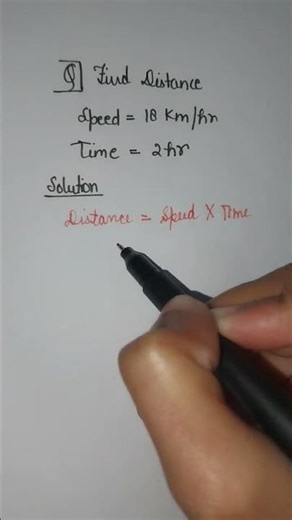 Q] Find Distance
Speed = 18 Km/hr
Time = 2hr
Solution
Distance = Speed X Time